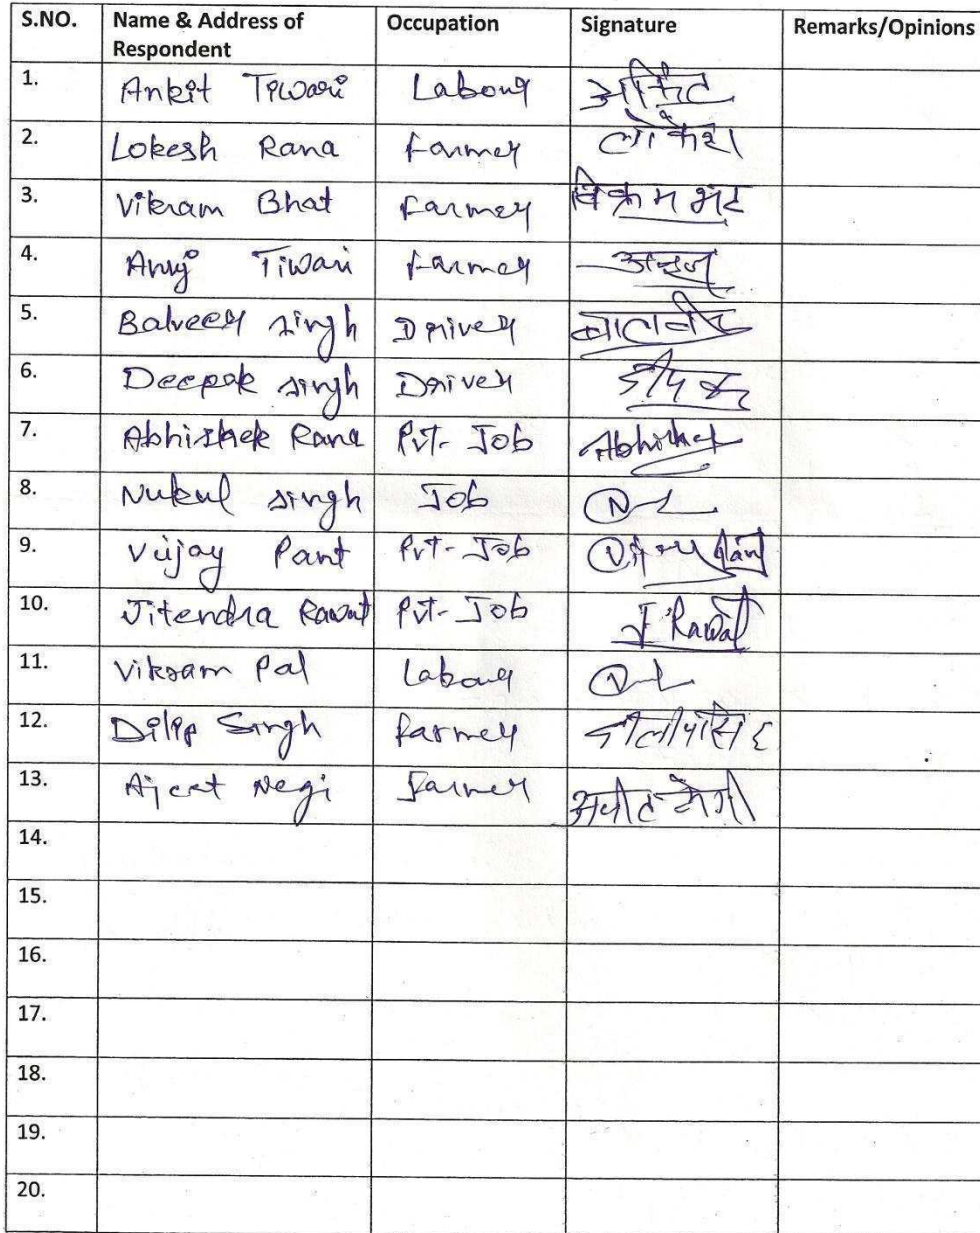 S.NO. Name & Address of Respondent Occupation Signature Remarks/Opinions
1. Ankit Tiwari Labour अंकित
2. Lokesh Rana Farmer लोकेश
3. Vikram Bhat Farmer विक्रम भट
4. Anuj Tiwari Farmer अनुज
5. Balveer Singh Driver
6. Deepak Singh Driver दीपक
7. Abhishek Rana Pvt-Job Abhishek
8. Nukul Singh Job
9. Vijay Pant Pvt-Job
10. Jitendra Rawat Pvt-Job J Rawat
11. Vikram Pal Labour
12. Dilip Singh Farmer
13. Ajeet Negi Farmer अजीत नेगी
14.
15.
16.
17.
18.
19.
20.